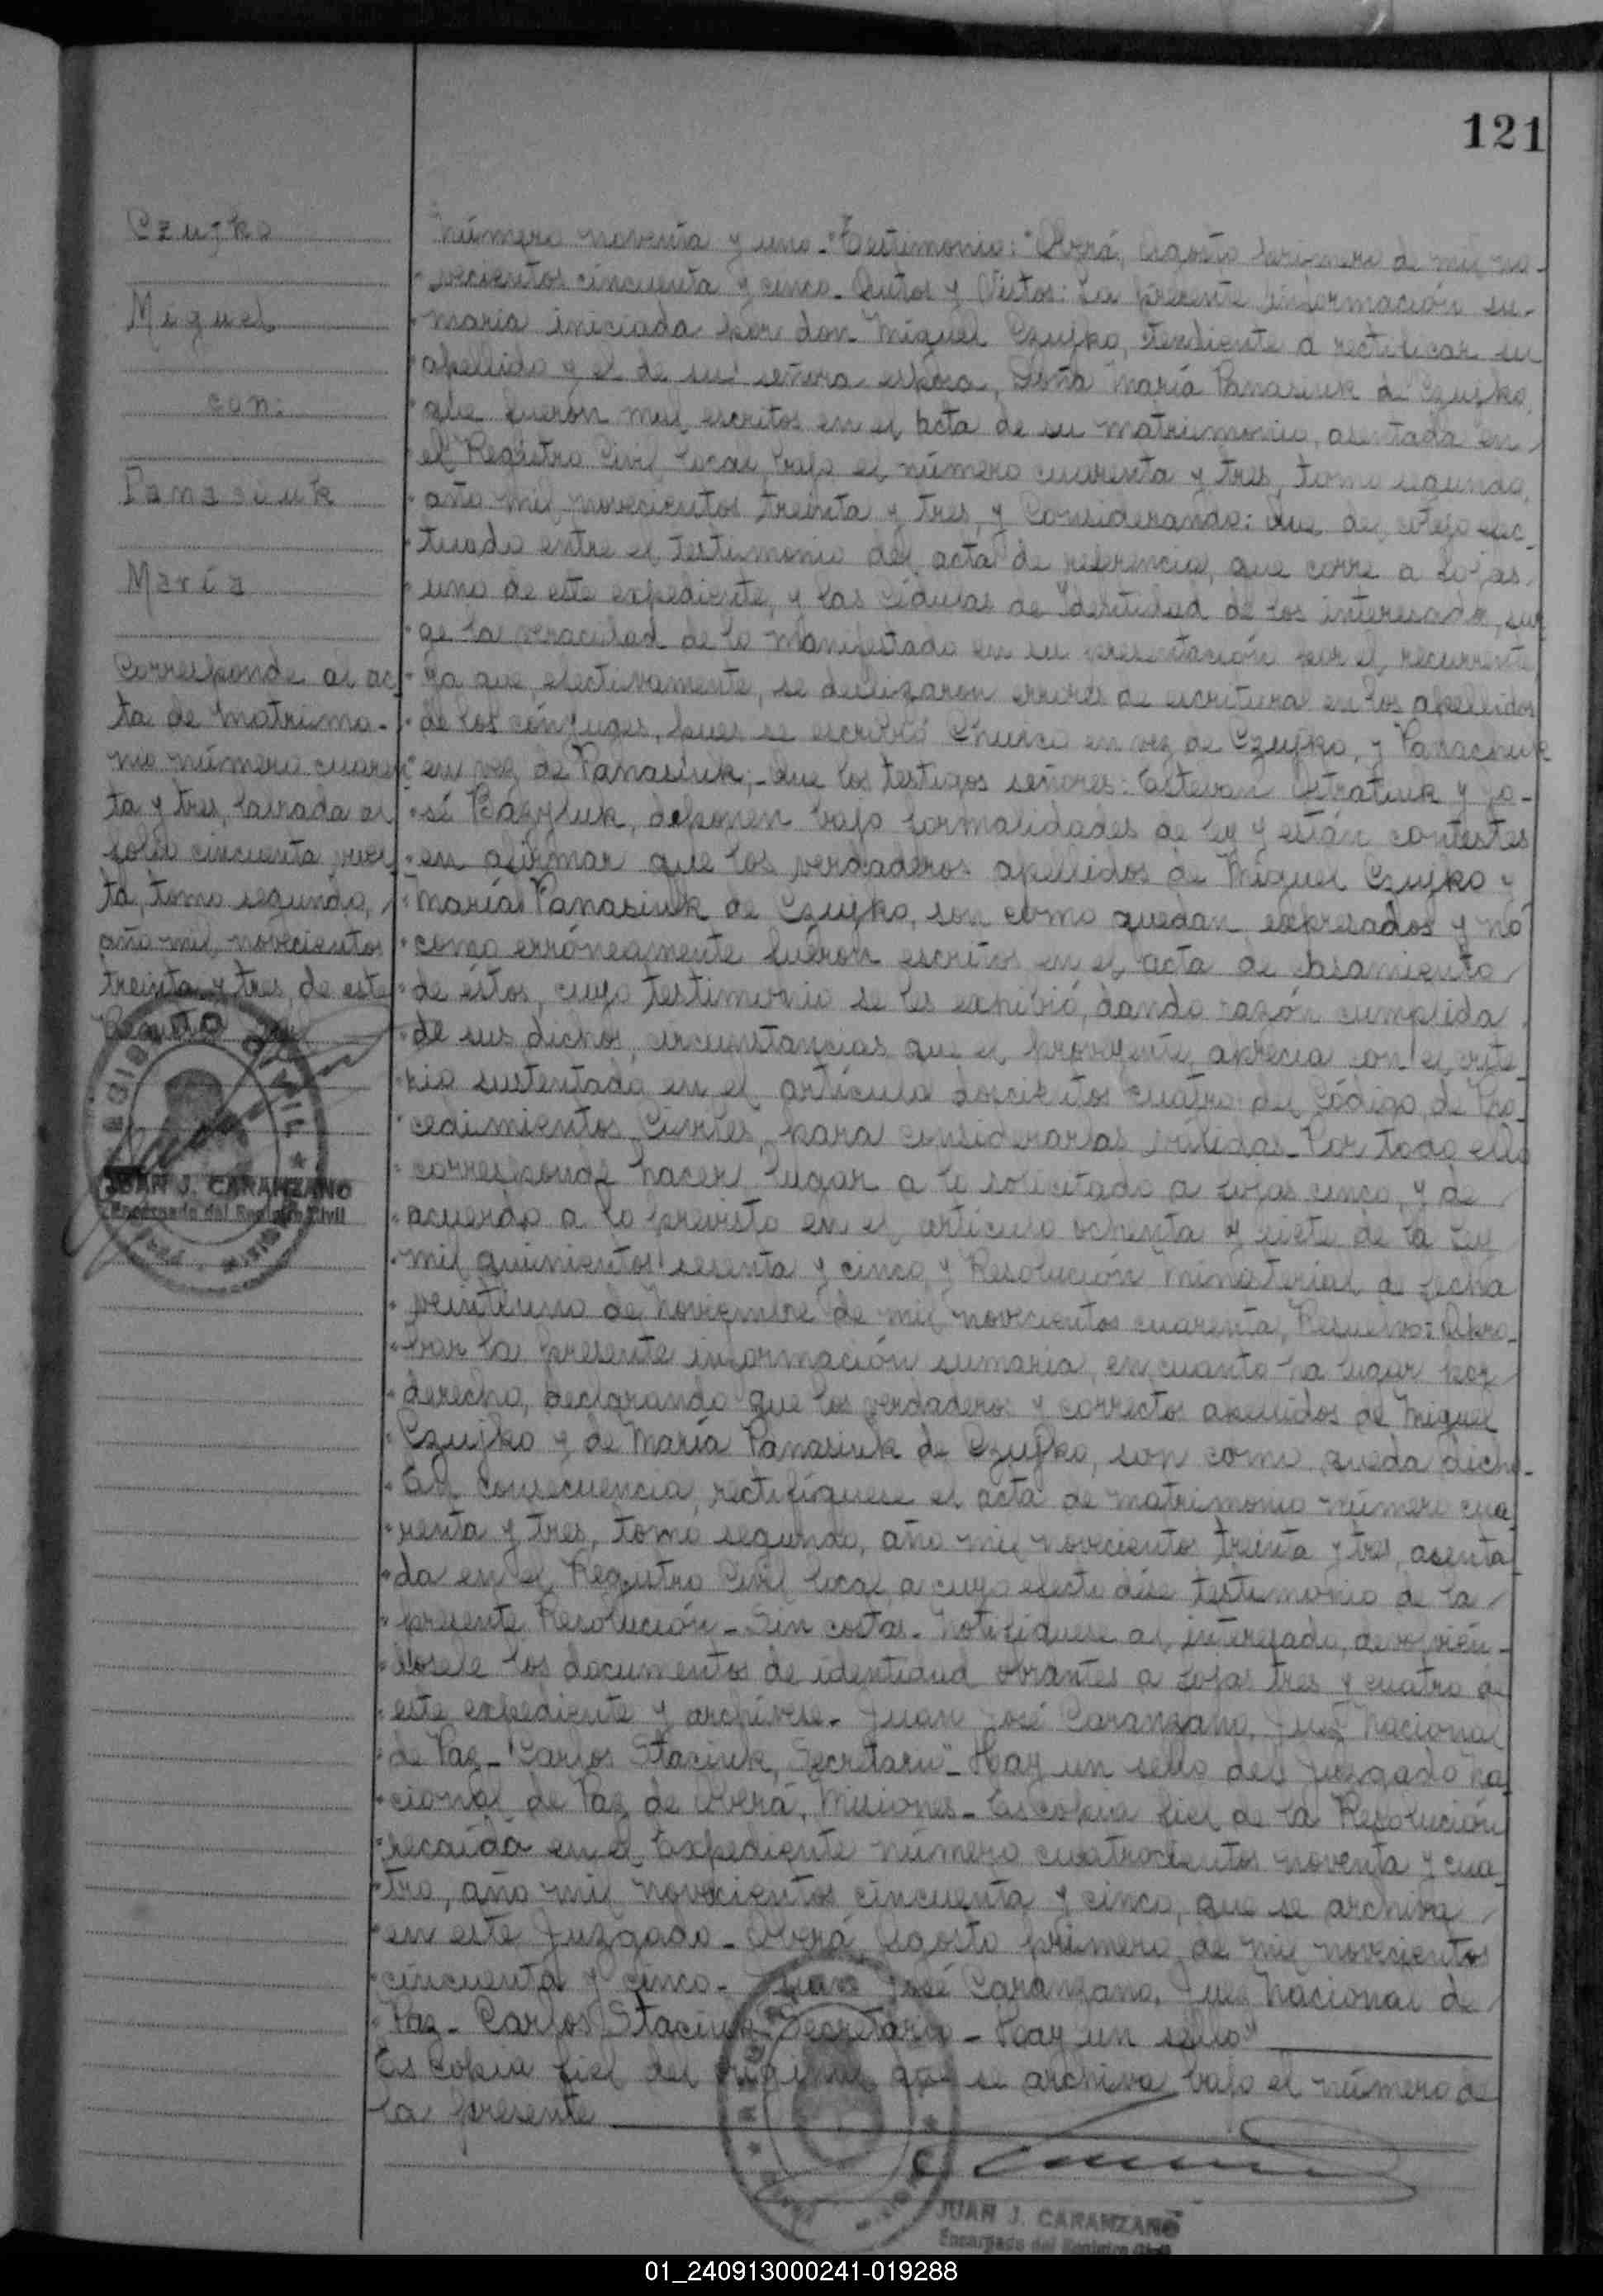 121
Czujko
Miguel
con:
Panasiuk
María
Corresponde al ac-
ta de matrimo-
nio número cuaren-
ta y tres, labrada al
folio cincuenta vuel-
ta, tomo segundo,
año mil novecientos
treinta y tres, de este
Registro
REGISTRO CIVIL
JUAN J. CARANZANO
Encargado del Registro Civil
Número noventa y uno.- "Testimonio: "Oberá, Agosto primero de mil no-
"vecientos cincuenta y cinco. Autos y Vistos: La presente información su-
"maria iniciada por don Miguel Czujko, tendiente a rectificar su
"apellido y el de su señora esposa, Doña María Panasiuk de Czujko,
"que fueron mal escritos en el acta de su matrimonio, asentada en
"el Registro Civil local, bajo el número cuarenta y tres, tomo segundo,
"año mil novecientos treinta y tres, y Considerando: Que del cotejo efec-
"tuado entre el testimonio del acta de referencia, que corre a fojas
"uno de este expediente, y las Cédulas de Identidad de los interesados, sur-
"ge la veracidad de lo manifestado en su presentación por el recurrente,
"ya que efectivamente, se deslizaron errores de escritura en los apellidos
"de los cónyuges, pues se escribió Chuico en vez de Czujko, y Panachuk
"en vez de Panasiuk;- Que los testigos señores: Esteban Ostratiuk y Jo-
"sé Bazyluk, deponen bajo formalidades de ley y están contestes
"en afirmar que los verdaderos apellidos de Miguel Czujko y
"María Panasiuk de Czujko, son como quedan expresados y no
"como erróneamente fueron escritos en el acta de casamiento
"de éstos, cuyo testimonio se les exhibió, dando razón cumplida
"de sus dichos, circunstancias que el proveyente aprecia con el crite-
"rio sustentado en el artículo doscientos cuatro del Código de Pro-
"cedimientos Civiles, para considerarlas válidas. Por todo ello
"corresponde hacer lugar a lo solicitado a fojas cinco, y de
"acuerdo a lo previsto en el artículo ochenta y siete de la Ley
"mil quinientos sesenta y cinco y Resolución Ministerial de fecha
"veintiuno de Noviembre de mil novecientos cuarenta, Resuelvo: Apro-
"bar la presente información sumaria, en cuanto ha lugar por
"derecho, declarando que los verdaderos y correctos apellidos de Miguel
"Czujko y de María Panasiuk de Czujko, son como queda dicho.-
"En consecuencia, rectifíquese el acta de matrimonio número cua-
"renta y tres, tomo segundo, año mil novecientos treinta y tres, asenta-
"da en el Registro Civil local, a cuyo efecto dése testimonio de la
"presente Resolución.- Sin costas.- Notifíquese al interesado, devolvién-
"dosele los documentos de identidad obrantes a fojas tres y cuatro de
"este expediente y archívese.- Juan José Caranzano, Juez Nacional
"de Paz.- Carlos Staciuk, Secretario".- Hay un sello del Juzgado Na-
"cional de Paz de Oberá, Misiones.- Es copia fiel de la Resolución
"recaída en el Expediente número cuatrocientos noventa y cua-
"tro, año mil novecientos cincuenta y cinco, que se archiva
"en este Juzgado.- Oberá, Agosto primero de mil novecientos
"cincuenta y cinco.- Juan José Caranzano, Juez Nacional de
"Paz.- Carlos Staciuk, Secretario.- Hay un sello"
Es Copia fiel del original que se archiva bajo el número de
la presente
JUAN J. CARANZANO
Encargado del Registro Civil
01_240913000241-019288